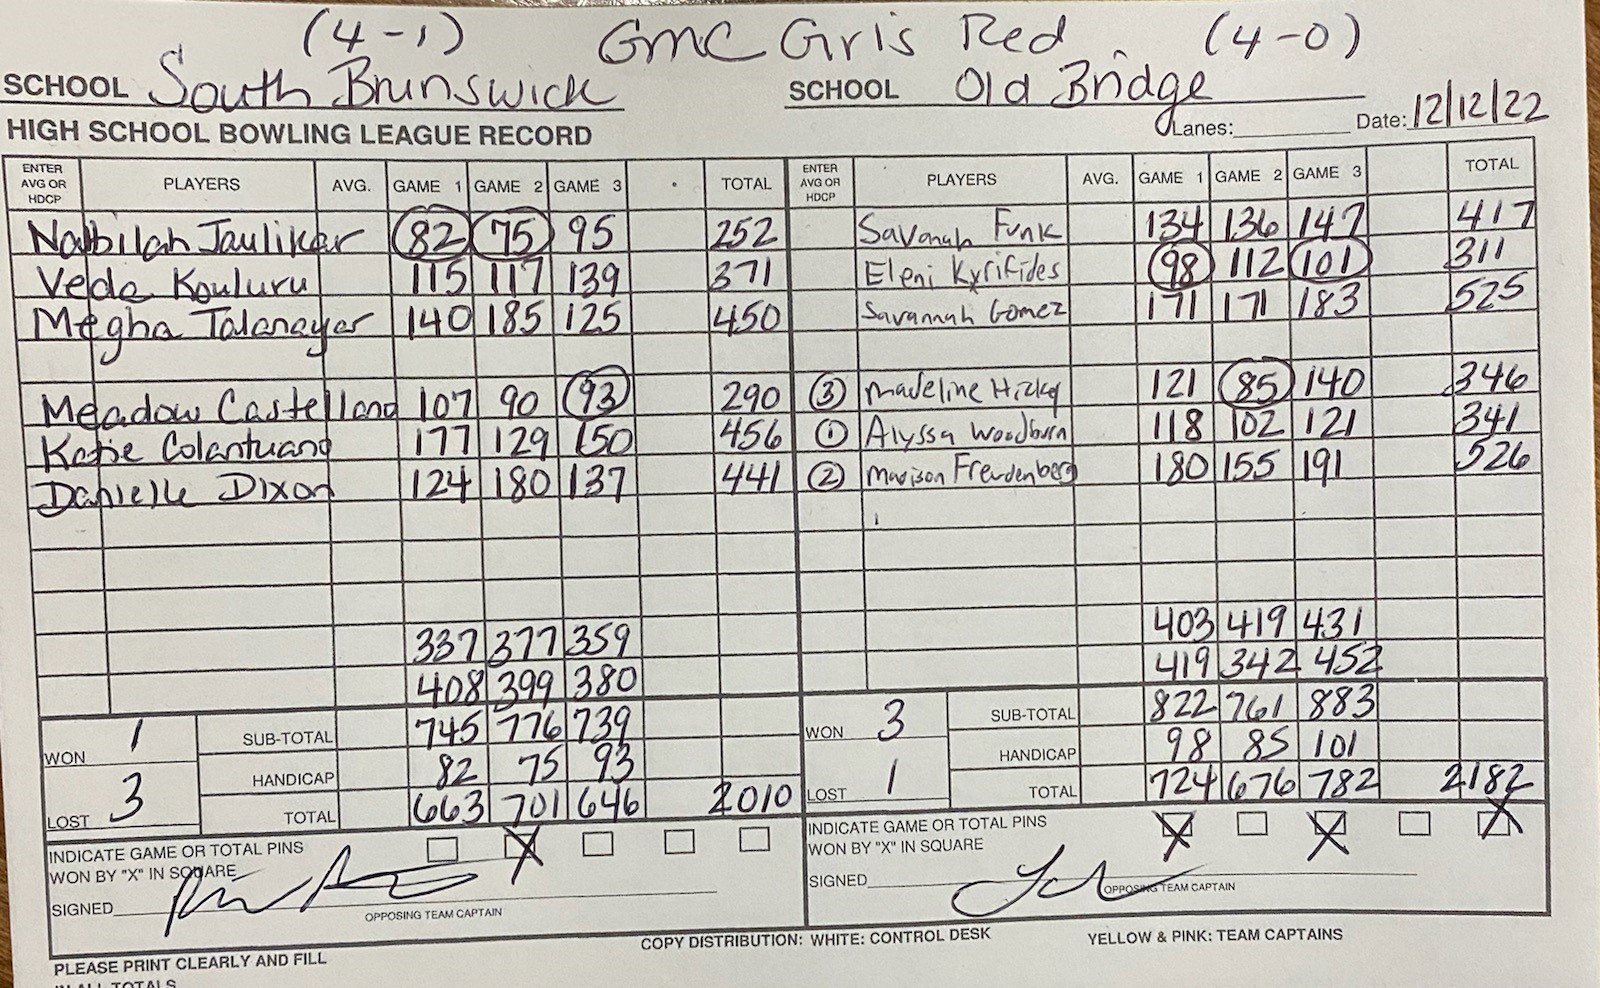 (4-1) GMC Girls Red. (4-0)
SCHOOL South Brunswick SCHOOL Old Bridge
HIGH SCHOOL BOWLING LEAGUE RECORD Lanes: Date: 12/12/22
ENTER AVG OR HDCP PLAYERS AVG. GAME 1 GAME 2 GAME 3 TOTAL ENTER AVG OR HDCP PLAYERS AVG. GAME 1 GAME 2 GAME 3 TOTAL
Nabilah Taulikar 82 75 95 252 Savanah Funk 134 136 147 417
Veda Kouluru 115 117 139 371 Eleni Kyrifides 98 112 101 311
Megha Talanayar 140 185 125 450 Savannah Gomez 171 171 183 525
Meadow Castellano 107 90 93 290 3 Madeline Hickey 121 85 140 346
Katie Colantuano 177 129 150 456 1 Alyssa Woodburn 118 102 121 341
Danielle Dixon 124 180 137 441 2 Madison Freudenberg 180 155 191 526
337 377 359 403 419 431
408 399 380 419 342 452
WON 1 SUB-TOTAL 745 776 739 WON 3 SUB-TOTAL 822 761 883
HANDICAP 82 75 93 HANDICAP 98 85 101
LOST 3 TOTAL 663 701 646 2010 LOST 1 TOTAL 724 676 782 2182
INDICATE GAME OR TOTAL PINS X INDICATE GAME OR TOTAL PINS X X X
WON BY "X" IN SQUARE WON BY "X" IN SQUARE
SIGNED OPPOSING TEAM CAPTAIN SIGNED OPPOSING TEAM CAPTAIN
COPY DISTRIBUTION: WHITE: CONTROL DESK YELLOW & PINK: TEAM CAPTAINS
PLEASE PRINT CLEARLY AND FILL
IN ALL TOTALS